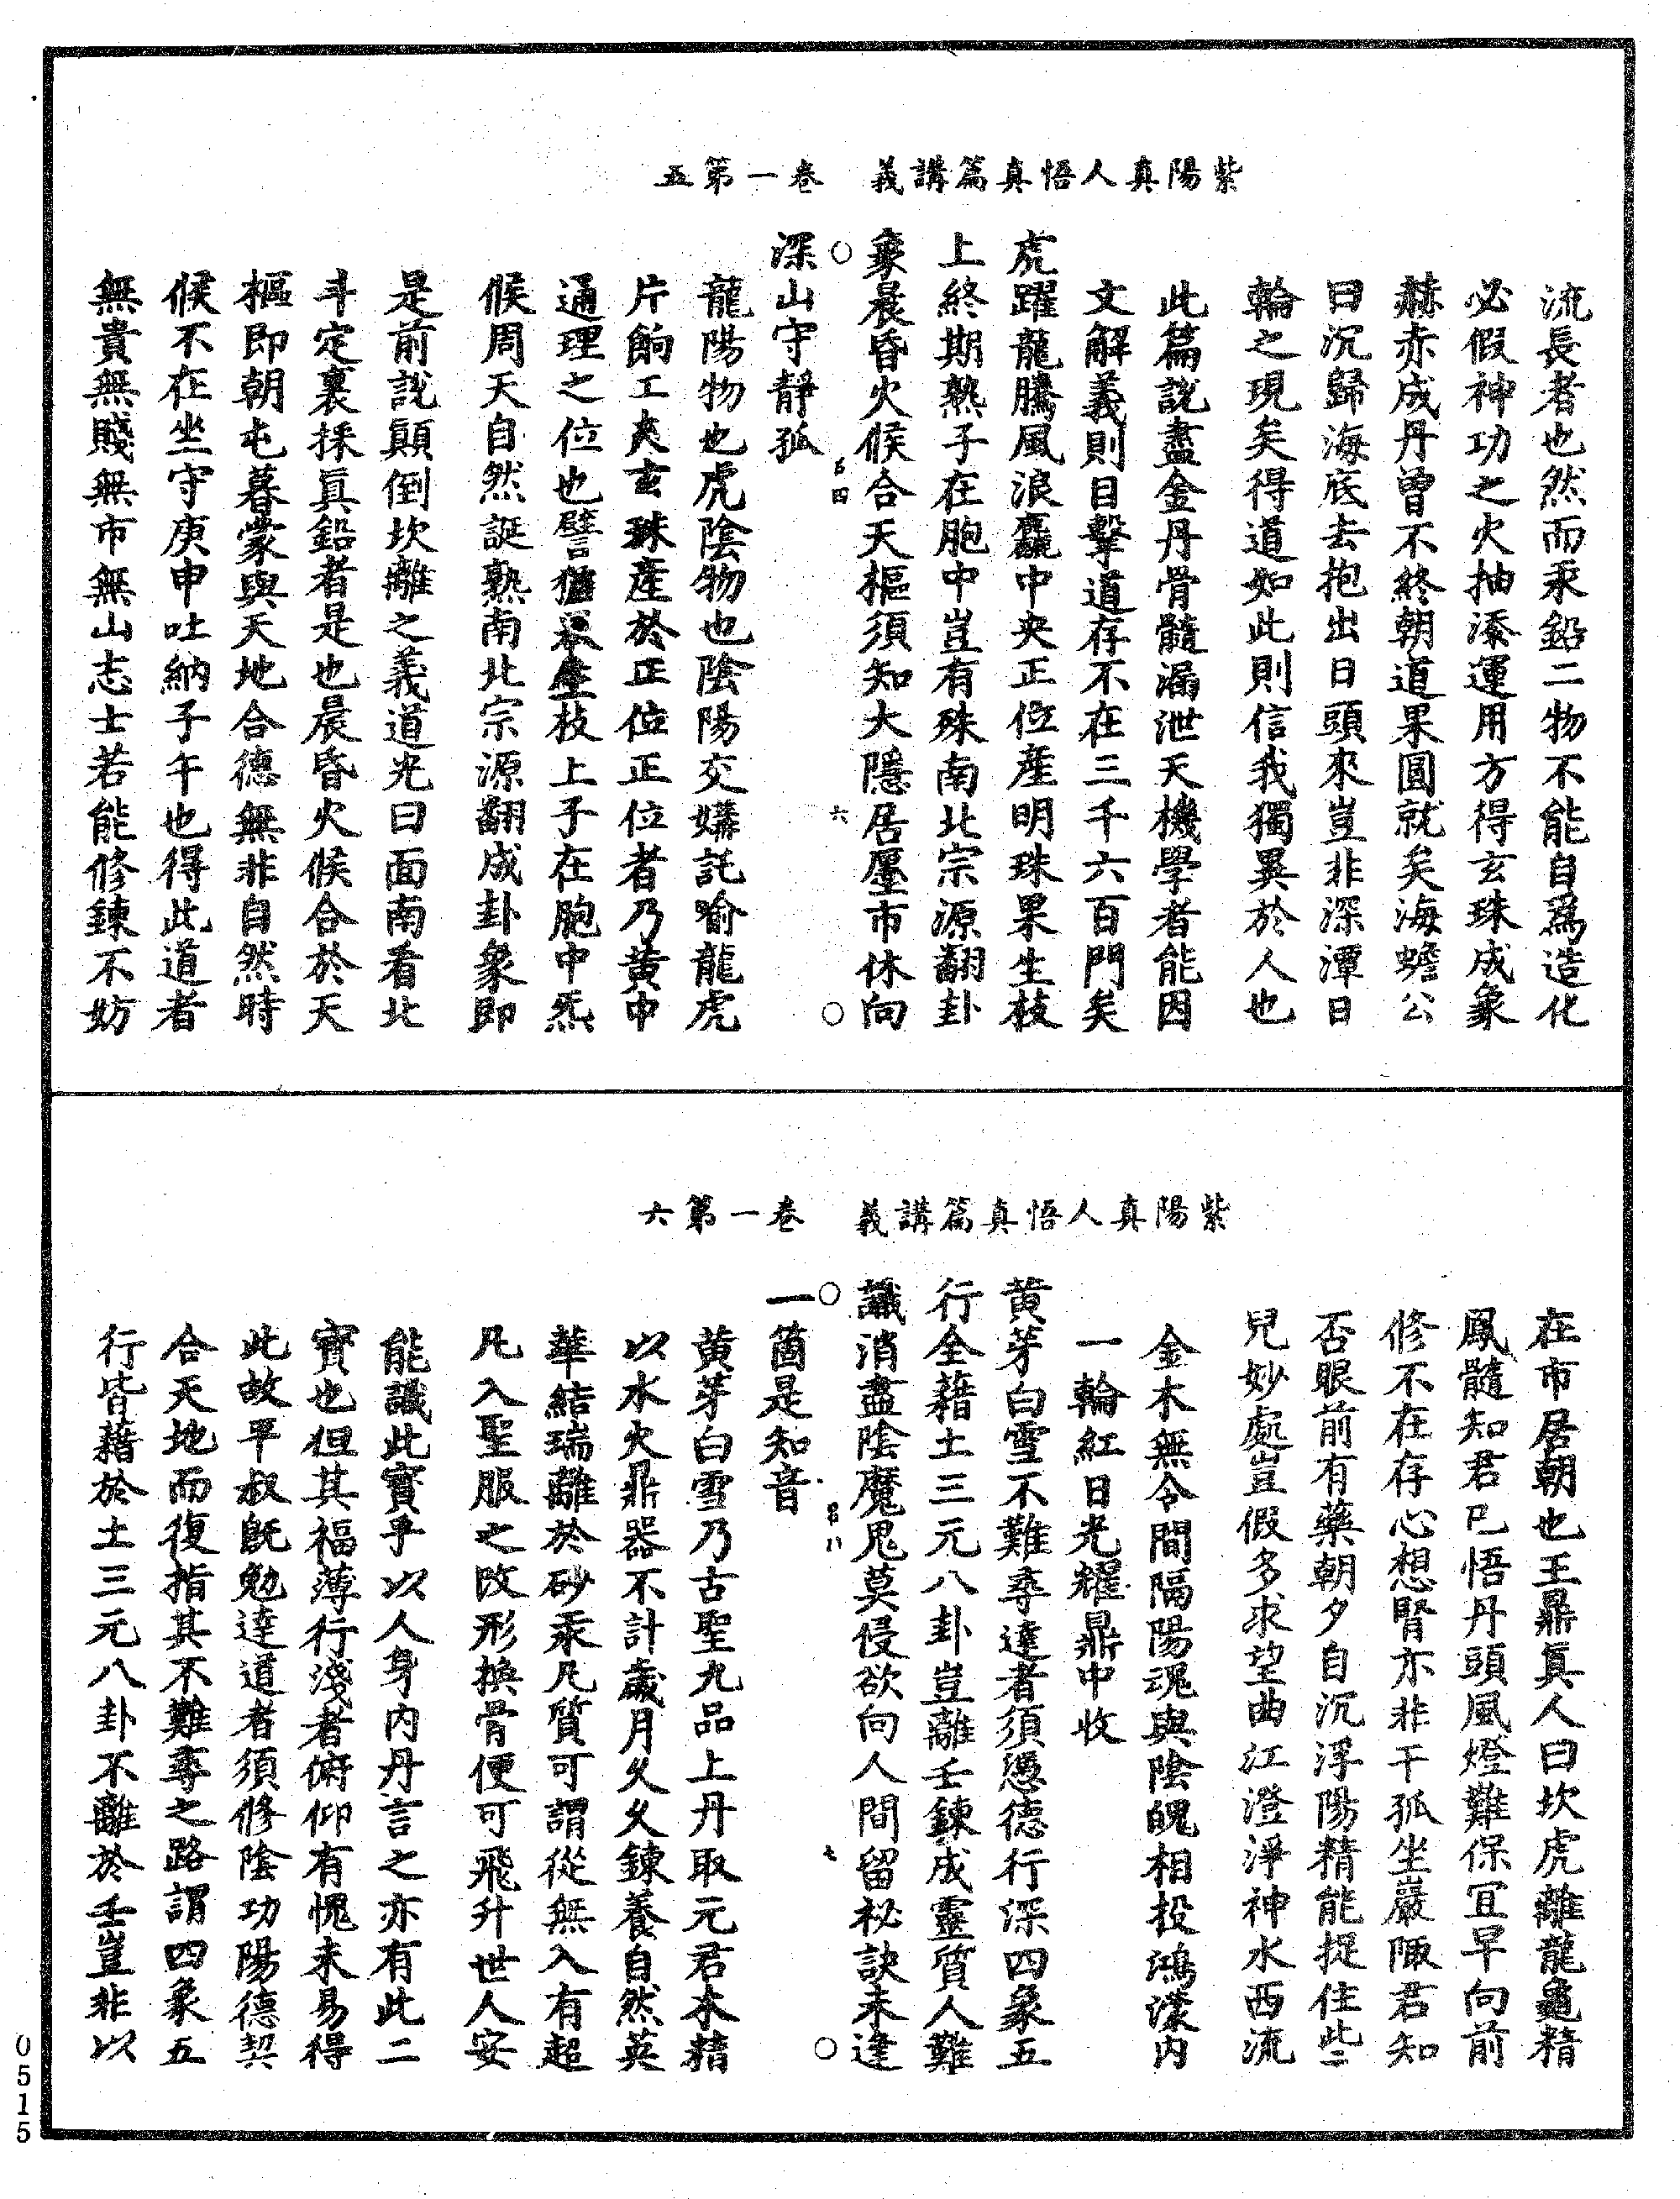 紫陽真人悟真篇講義　卷一第五
流長者也然而汞鉛二物不能自爲造化
必假神功之火抽添運用方得玄珠成象
赫赤成丹曾不終朝道果圓就矣海蟾公
曰沉歸海底去抱出日頭來豈非深潭日
輪之現矣得道如此則信我獨異於人也
此篇說盡金丹骨髓漏泄天機學者能因
文解義則目擊道存不在三千六百門矣
虎躍龍騰風浪麤中央正位產明珠果生枝
上終期熟子在胞中豈有殊南北宗源翻卦
象晨昏火候合天樞須知大隱居廛市休向
六
深山守靜孤
龍陽物也虎陰物也陰陽交媾託喻龍虎
片餉工夫玄珠產於正位正位者乃黄中
通理之位也譬猶果生枝上子在胞中炁
候周天自然誕熟南北宗源翻成卦象即
是前說顛倒坎離之義道光曰面南看北
斗定裏採真鉛者是也晨昏火候合於天
樞即朝屯暮蒙與天地合德無非自然時
候不在坐守庚申吐納子午也得此道者
無貴無賤無市無山志士若能修鍊不妨
紫陽真人悟真篇講義　卷一第六
在市居朝也王鼎真人曰坎虎離龍龜精
鳳髓知君已悟丹頭風燈難保冝早向前
修不在存心想腎亦非干孤坐巖陬君知
否眼前有藥朝夕自沉浮陽精能捉住些
兒妙處豈假多求望曲江澄淨神水西流
金木無令間隔陽魂與陰魄相投鴻濛内
一輪紅日光耀鼎中收
黄芽白雪不難尋達者須憑德行深四象五
行全藉土三元八卦豈離壬鍊成靈質人難
識消盡陰魔鬼莫侵欲向人間留祕訣未逢
七
一箇是知音
黄芽白雪乃古聖九品上丹取元君本精
以水火鼎器不計歲月久久鍊養自然英
華結瑞離於砂汞凡質可謂從無入有超
凡入聖服之改形換骨便可飛升世人安
能識此寳乎以人身内丹言之亦有此二
寳也但其福薄行淺者俯仰有愧未易得
此故平叔旣勉達道者須修陰功陽德契
合天地而復指其不難尋之路謂四象五
行皆藉於土三元八卦不離於壬豈非以
0515